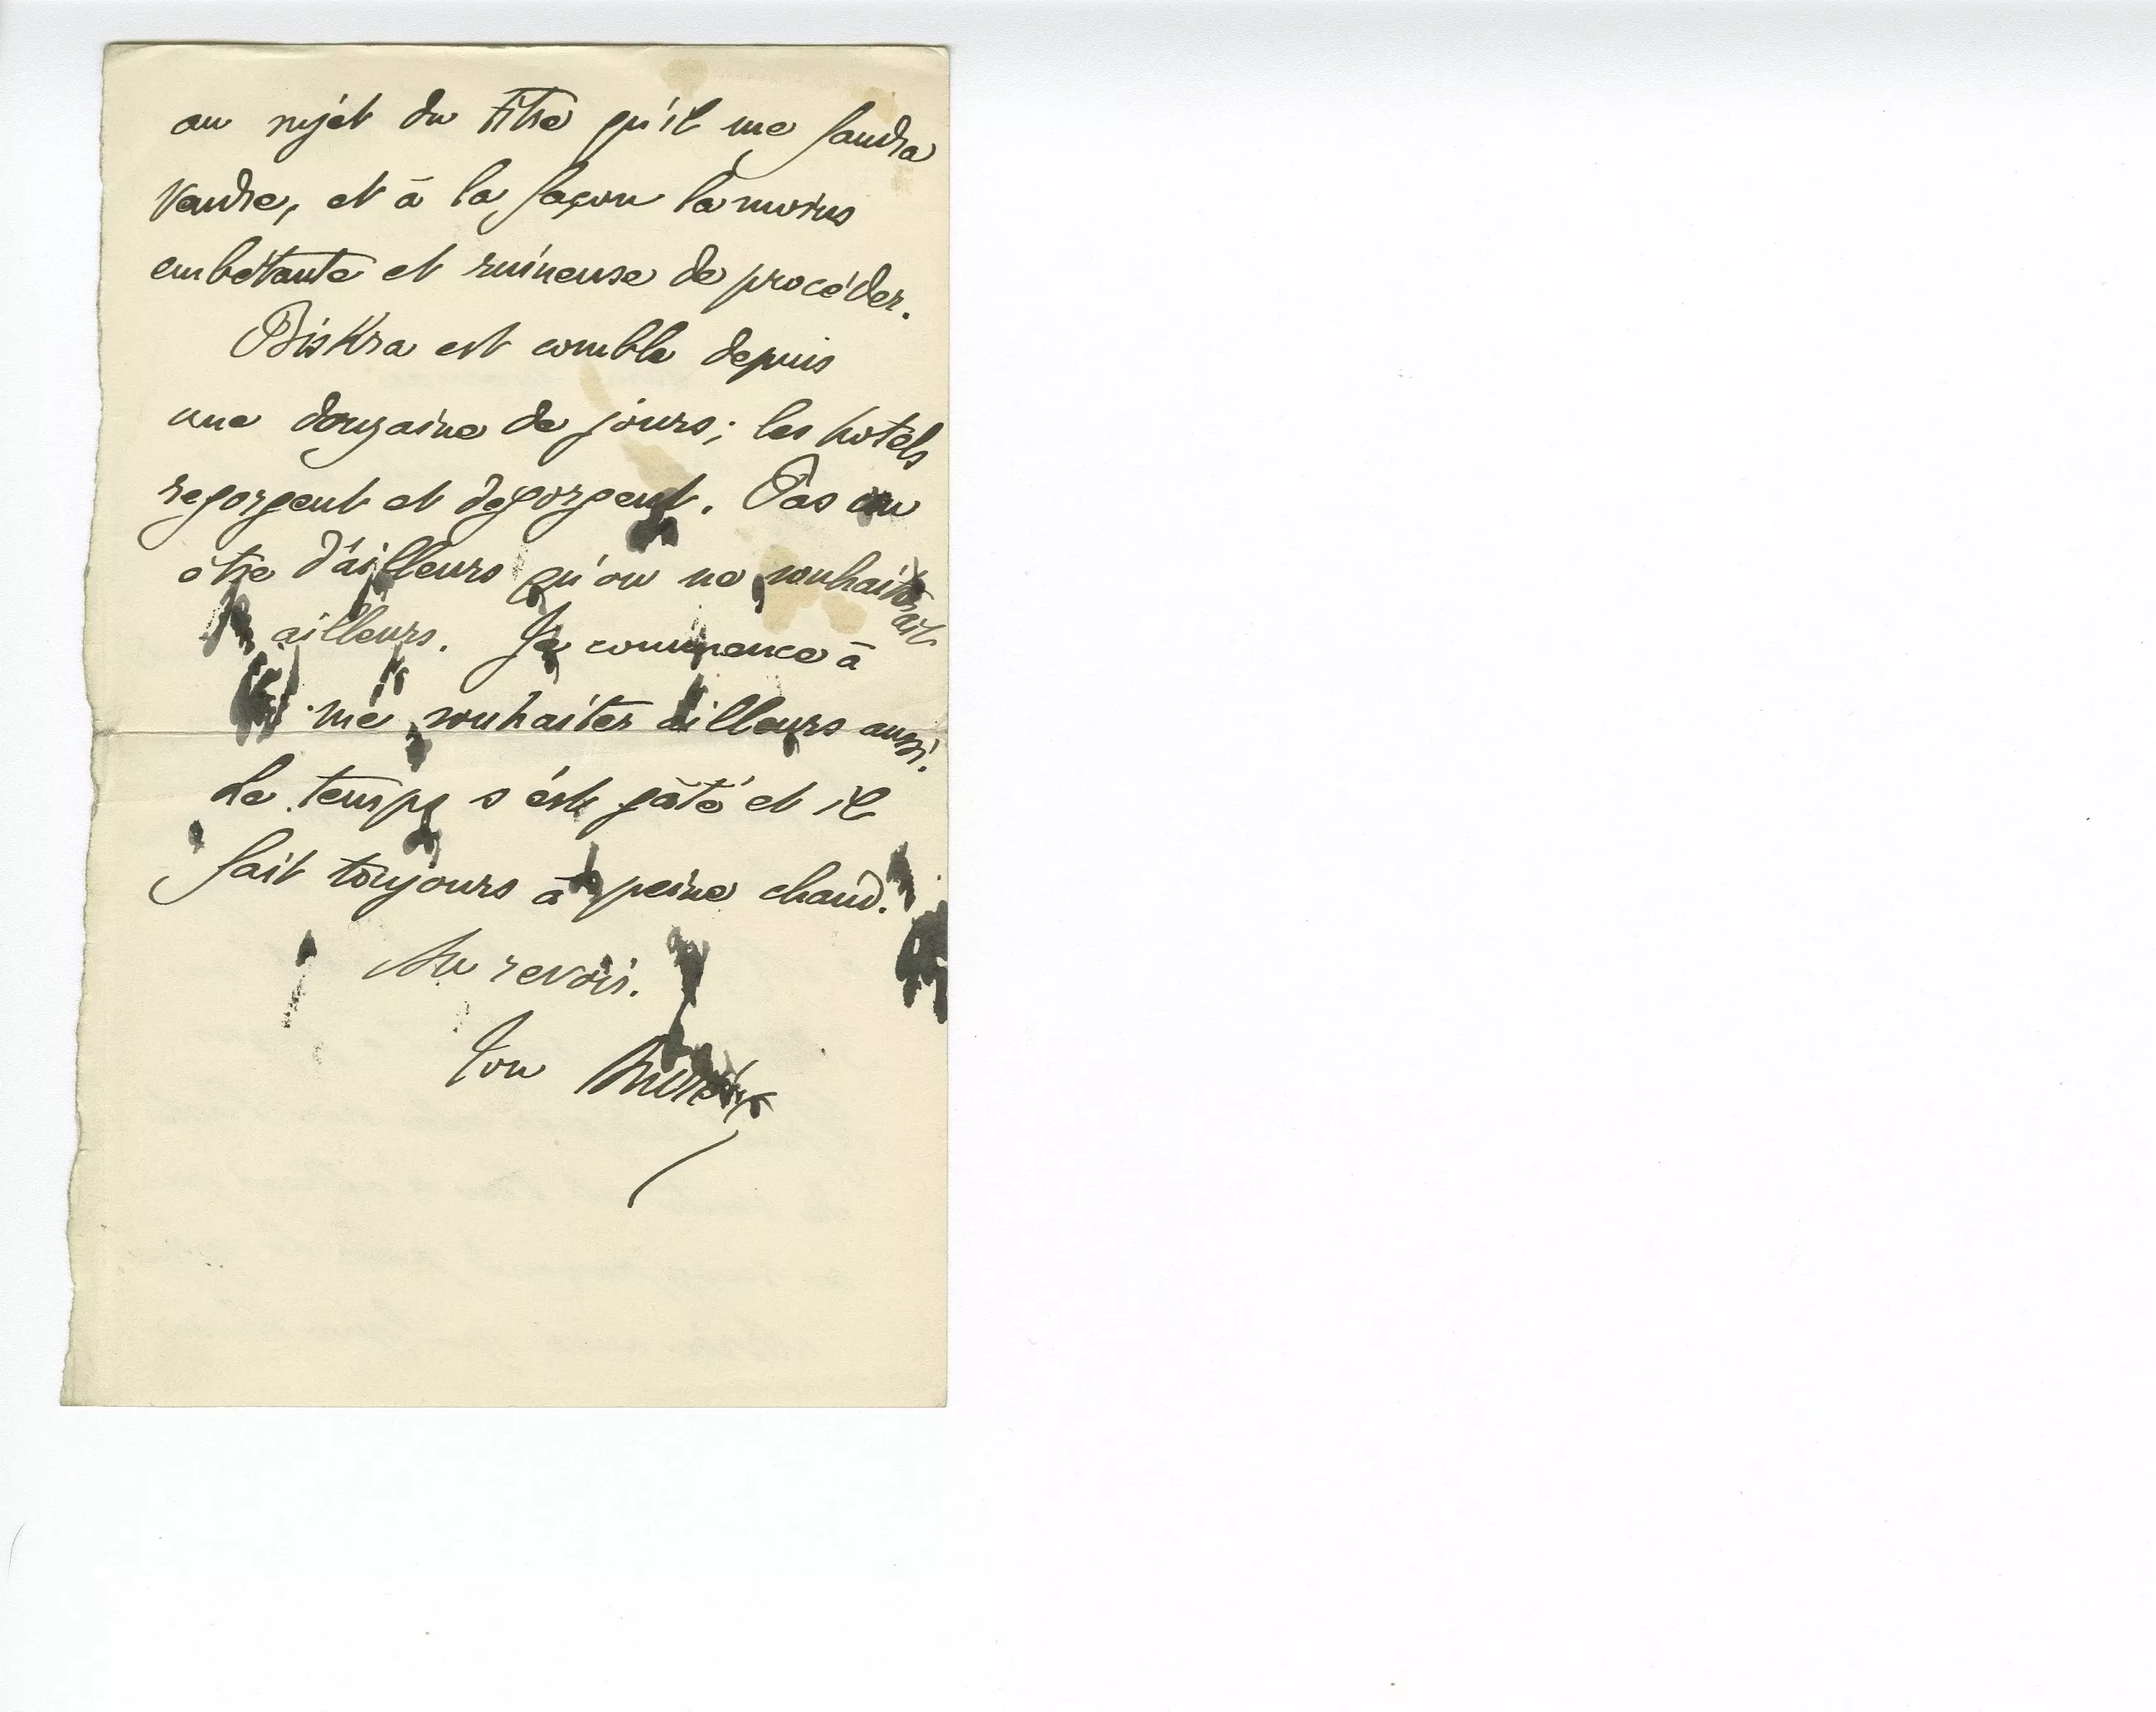 au sujet du titre qu'il me faudra
vendre, et à la façon la moins
embêtante et ruineuse de procéder.
Biskra est comble depuis
une douzaine de jours ; les hôtels
regorgent et dégorgent. Pas un
être d'ailleurs qu'on ne souhaiterait
ailleurs. Je commence à
me souhaiter ailleurs aussi.
Le temps s'est gâté et il
fait toujours à peine chaud.
Au revoir.
Ton